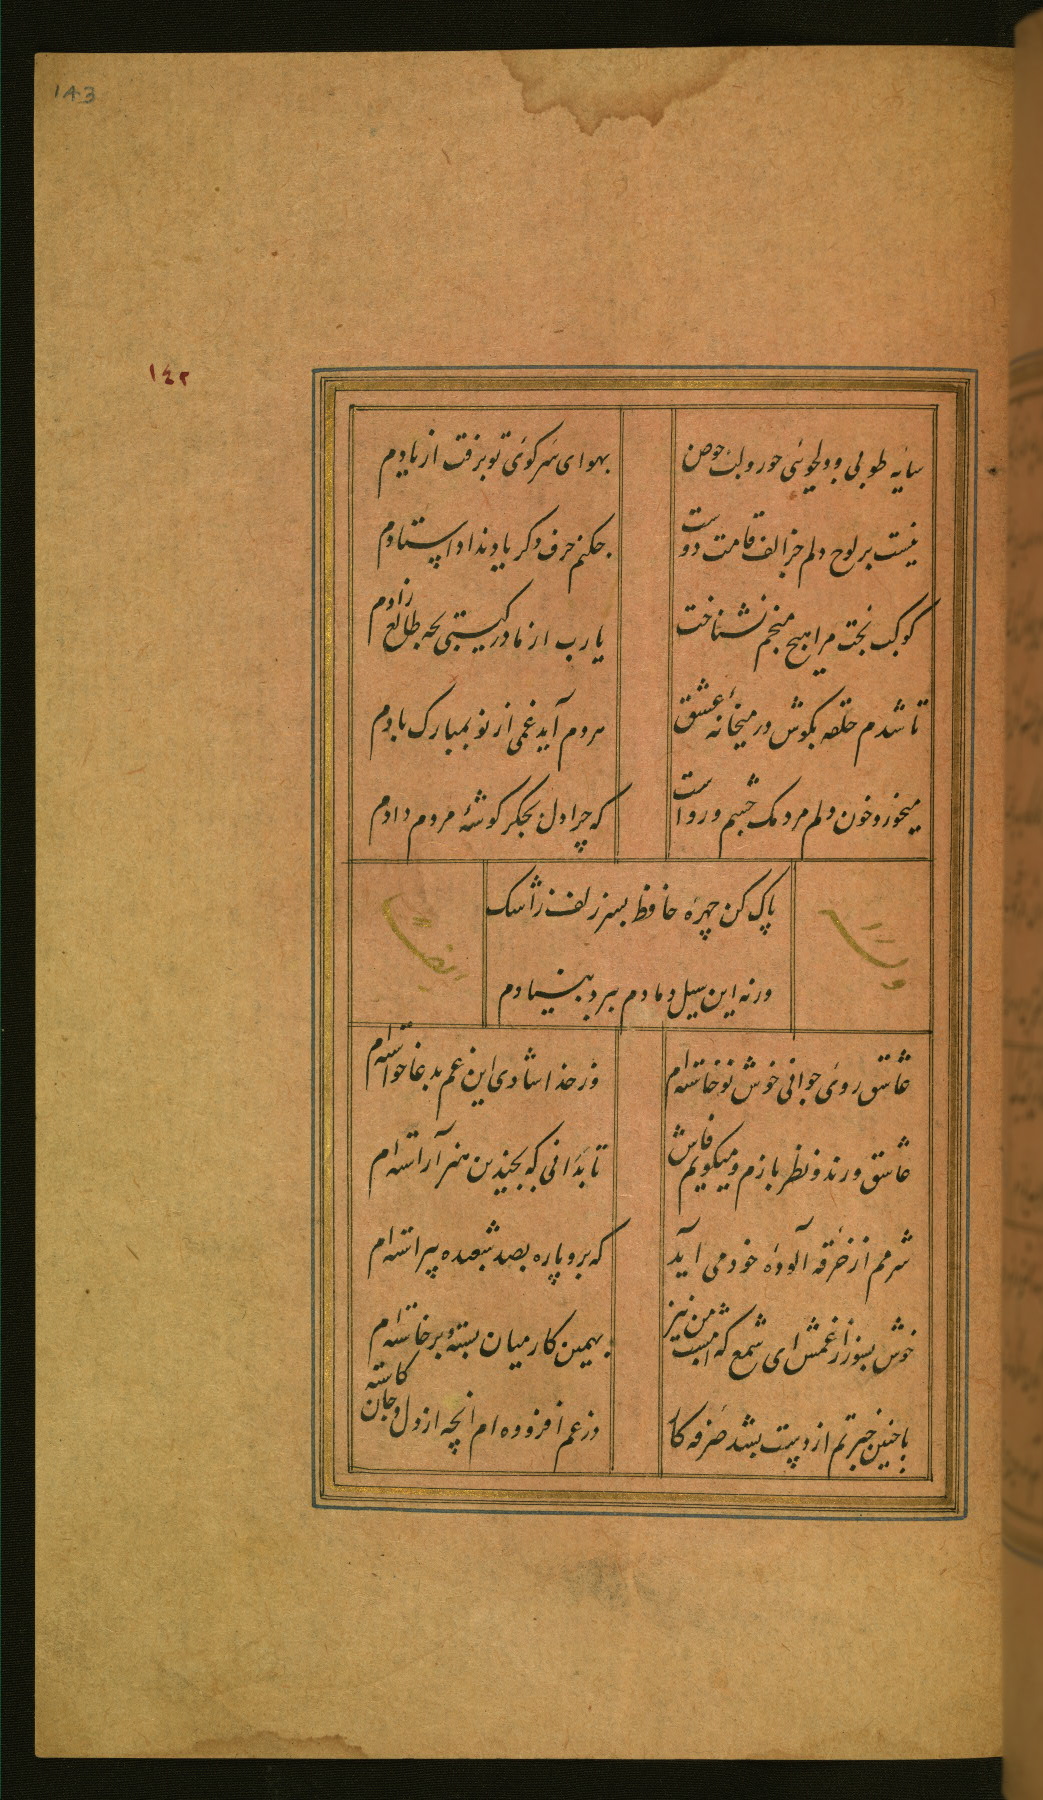 143
١٤٢
سایه طوبی و دلجوئی حور و لب حوض
بهوای سر کوی تو برفت از یادم
نیست بر لوح دلم جز الف قامت دوست
چکنم حرف دکر یاد نداد استادم
کوکب بخت مرا هیچ منجم نشناخت
یارب از مادر کیتی بچه طالع زادم
تا شدم حلقه بکوش در میخانه عشق
هر دم آید غمی از نو بمبارک بادم
میخورد خون دلم مردمک چشم و رواست
که چرا دل بجکر کوشهٔ مردم دادم
پاک کن چهرهٔ حافظ بسر زلف ز اشک
ورنه این سیل دمادم ببرد بنیادم
عاشق روی جوانی خوش نوخاسته ام
وز خدا شادی این غم بدعا خواسته ام
عاشق و رند و نظر بازم و میکویم فاش
تا بدانی که بچندین هنر آراسته ام
شرمم از خرقه آلودهٔ خود می آید
که برو پاره بصد شعبده پیراسته ام
خوش بسوز از غمش ای شمع که امشب من نیز
بهمین کار میان بسته و برخاسته ام
با چنین حیرتم از دست بشد صرفه کار
در غم افزوده ام آنچه از دل و جان کاسته